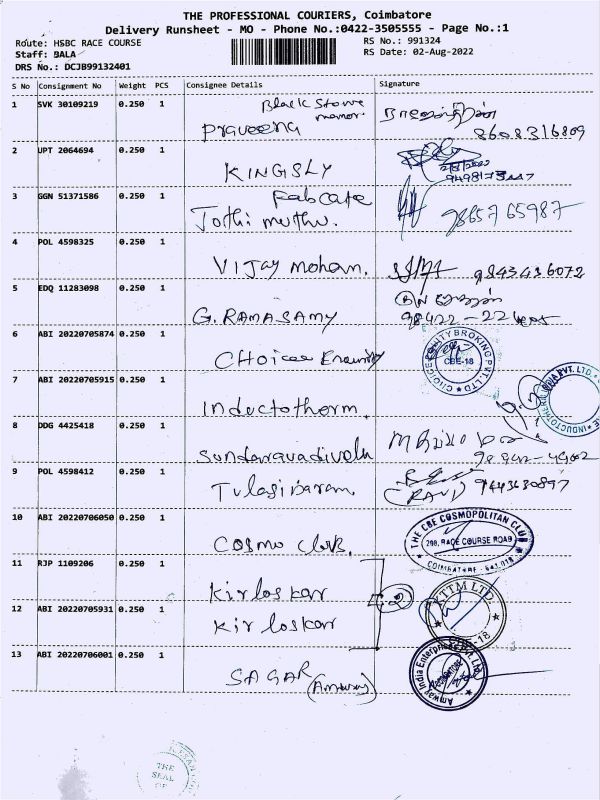 THE PROFESSIONAL COURIERS, Coimbatore
Delivery Runsheet - MO - Phone No.:0422-3505555 - Page No.:1
Route: HSBC RACE COURSE RS No.: 991324
Staff: BALA RS Date: 02-Aug-2022
DRS No.: DCJB99132401
S No Consignment No Weight PCS Consignee Details Signature
1 SVK 30109219 0.250 1 Black Stone
manor.
Praveena
8608316809
2 UPT 2064694 0.250 1
KINGSLY
3 GGN 51371586 0.250 1 Fabcafe
Jothi muthu. 9865765987
4 POL 4598325 0.250 1
Vijay mohan. 9843436072
5 EDQ 11283098 0.250 1
G. RAMASAMY
6 ABI 20220705874 0.250 1
CHoice Enquity
CHOICE EQUITY BROKING PVT. LTD
CBE-18
7 ABI 20220705915 0.250 1
Inductotherm.
8 DDG 4425418 0.250 1
Sundaravadivelu
9 POL 4598412 0.250 1
Tulasiraram (RAVI) 9443630897
10 ABI 20220706050 0.250 1
COSMO Club.
THE CBE COSMOPOLITAN CLUB
208, RACE COURSE ROAD
COIMBATORE - 641 018
11 RJP 1109206 0.250 1
Kirloskar
12 ABI 20220705931 0.250 1
Kirloskar
13 ABI 20220706001 0.250 1
SAGAR
(Amway)
Amway India Enterprises Pvt. Ltd.
THE
SEAL
OF